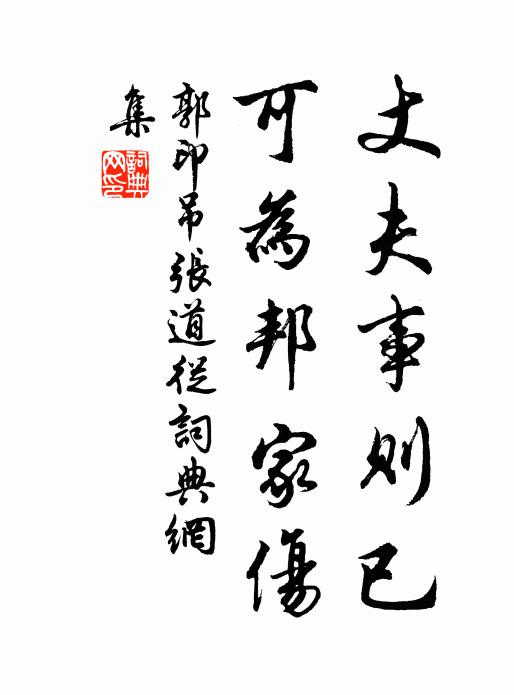 丈夫事則已
可為邦家傷
郭印吊張道從詞典網
集
詞典網印